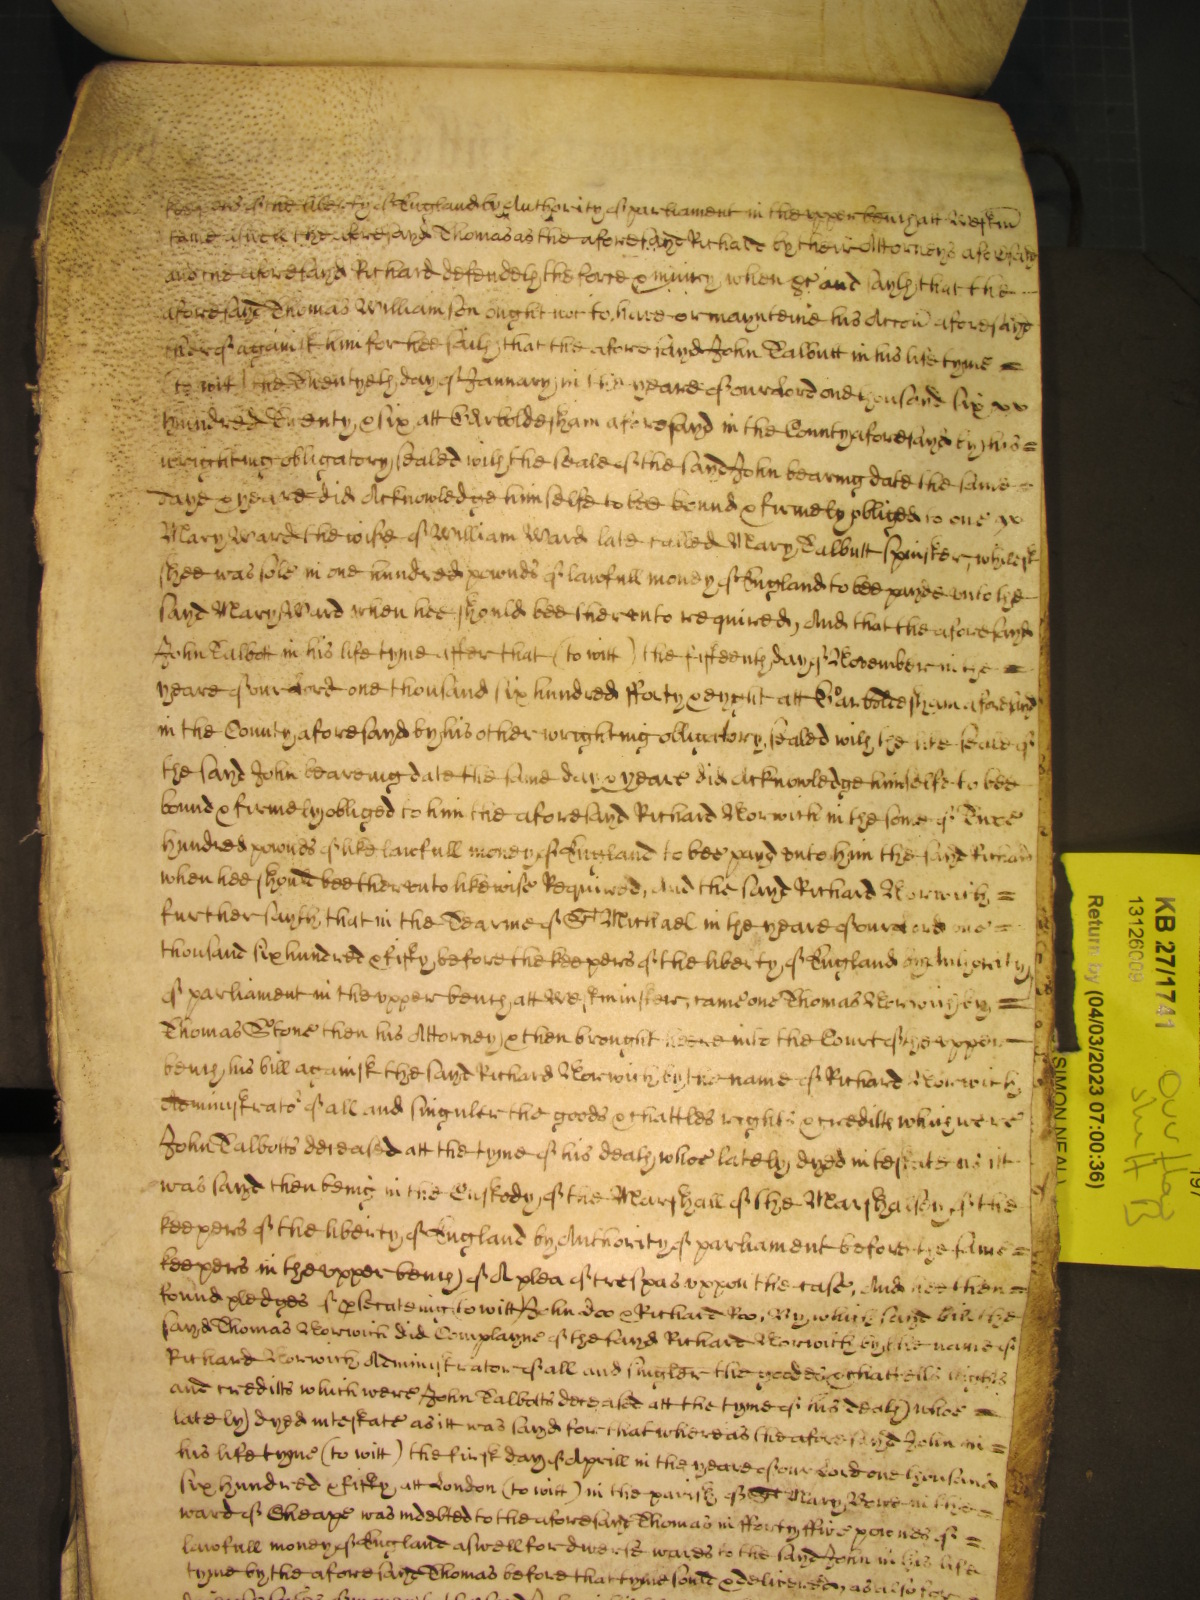 keepers of the liberty of England by Authority of parliament in the upper bench att Westm
came aswell the aforesayd Thomas as the aforesayd Richard by their Attorneys aforesayd
And the aforesayd Richard defendeth the force & iniury when &c and sayth that the
aforesayd Thomas Williamson ought not to have or maynteine his Accon aforesayd
thereof against him for hee saith that the aforesayd John Talbutt in his life tyme =
(to wit) the Twentyeth day of January in the yeare of our Lord one thousand six
hundred Twenty & six att Garboldesham aforesayd in the County aforesayd by his =
wrighting obligatory sealed with the seale of the sayd John bearing date the same =
daye & yeare did Acknowledge himselfe to bee bound & firmely obliged to one
Mary Ward the wife of William Ward late called Mary Talbutt Spinster, whilest
shee was sole in one hundred pownds of lawfull money of England to bee payde unto the
sayd Mary Ward when hee should bee therunto required, And that the aforesayd
John Talbott in his life tyme after that (to witt) the fifteenth day of November in the =
yeare of our Lord one thousand six hundred fforty & eyght att Garboldesham aforesayd
in the County aforesayd by his other wrighting obligatory, sealed with the like seale of
the sayd John beareing date the same day & yeare did Acknowledge himselfe to bee
bound & firmely obliged to him the aforesayd Richard Norwich in the some of
hundred pownds of like lawfull money of England to bee payd unto him the sayd Richard
when hee should bee therunto likewise Required, And the sayd Richard Norwich =
further sayth that in the Tearme of St Michael in the yeare of our Lord one =
thousand six hundred & fifty, before the keepers of the liberty of England by Authority
of parliament in the upper bench att Westminster, came one Thomas Norwich by =
Thomas Stone then his Attorney & then brought heere into the Court of the upper
bench, his bill against the sayd Richard Norwich by the name of Richard Norwich
Administrator of all and singuler the goods & chattles rights & creditts which were
John Talbotts deceased att the tyme of his death whoe lately dyed intestate as itt
was sayd then being in the Custody of the Marshall of the Marshalsey of the
keepers of the liberty of England by Authority of parliament before the same =
keepers in the upper bench of A plea of trespas uppon the case, And hee then =
found pledges of psecuteing to witt John doo & Richard Roo, By which sayd bill the
sayd Thomas Norwich did Complayne of the sayd Richard Norwich by the name of
Richard Norwich Administrator of all and singler the goodes & chattells rights
and creditts which were John Talbotts deceased att the tyme of his death whoe =
lately dyed intestate as itt was sayd for that whereas the aforesayd John in =
his life tyme (to witt) the first day of Aprill in the yeare of our Lord one thousand
six hundred & fifty att London (to witt) in the parish of St Mary Bowe in the =
ward of Cheape was indebted to the aforesayd Thomas in fforty ffive pownds of =
lawfull money of England aswell for diverse wares to the sayd John in his life
tyme by the aforesayd Thomas before that tyme sould & delivered, as also for
KB 27/1741
13126009
Return by (04/03/2023 07:00:36)
SIMON NEAL